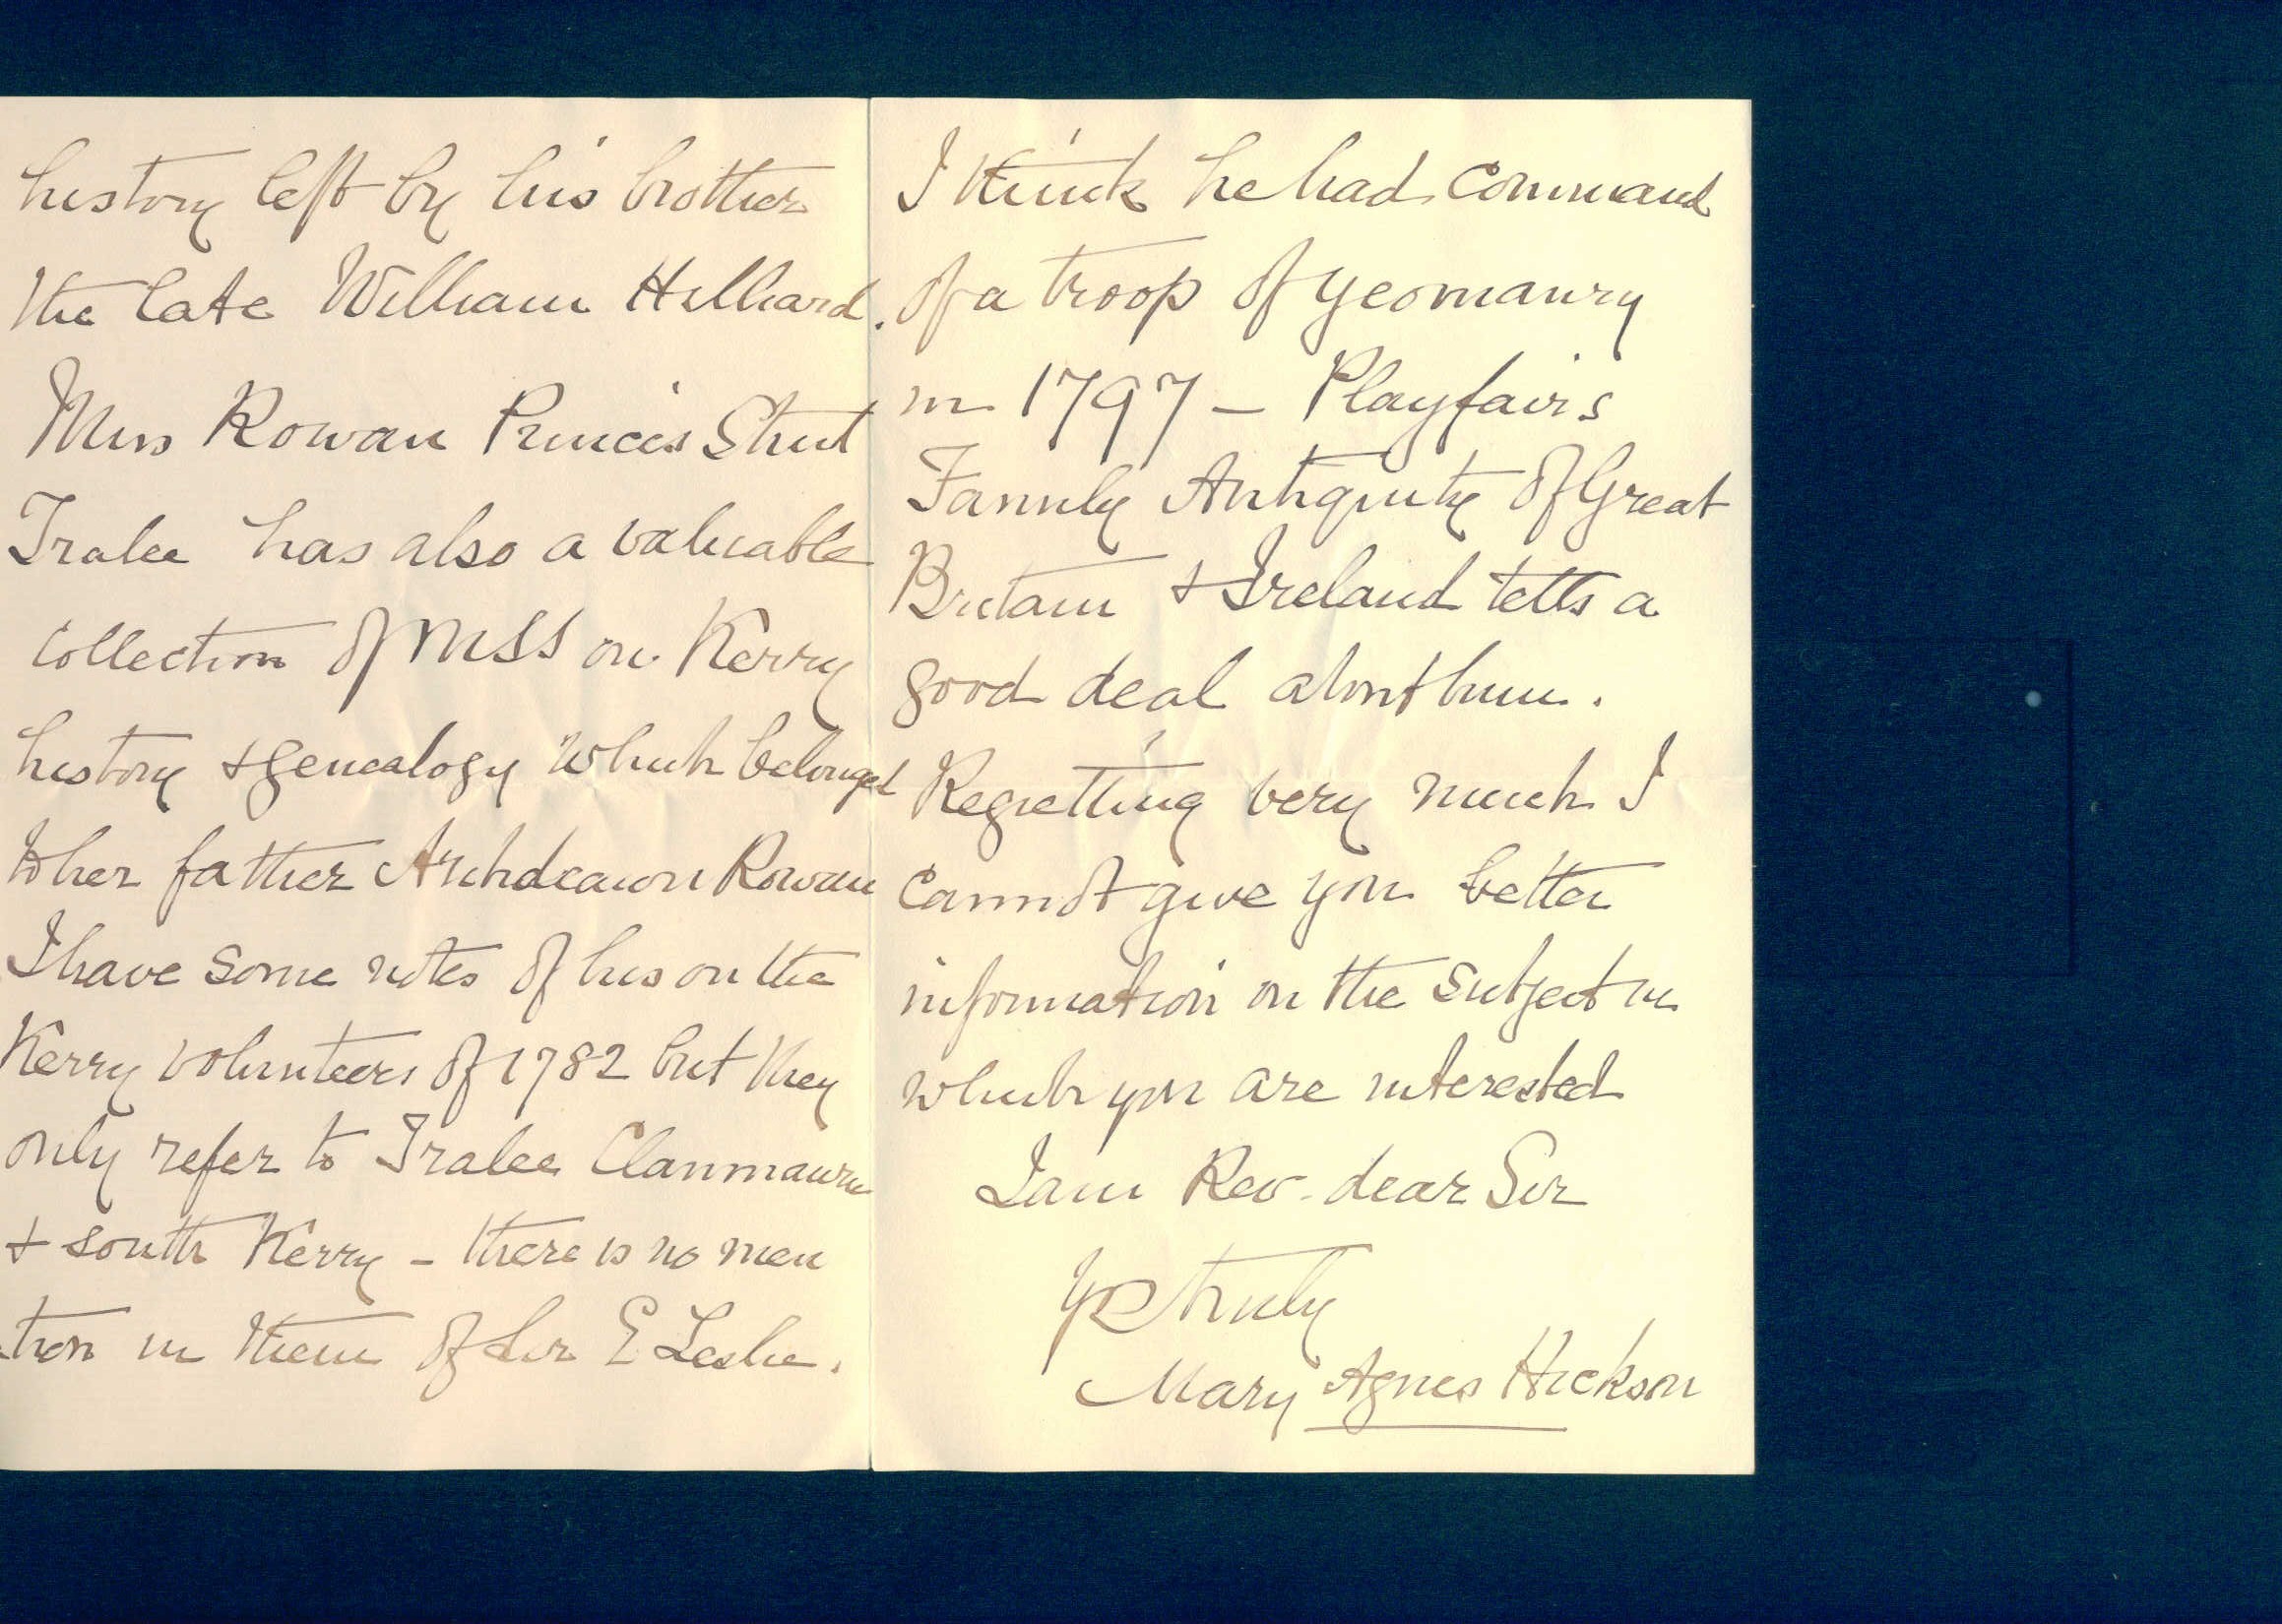 history left by his brother
the late William Hilliard.
Miss Rowan Princes Street
Tralee has also a valuable
collection of MSS on Kerry
history & genealogy which belonged
to her father Archdeacon Rowan
I have some notes of his on the
Kerry volunteers of 1782 but they
only refer to Tralee Clanmaurice
& south Kerry - there is no men
tion in them of Sir E Leslie.
I think he had command
of a troop of yeomanry
in 1797 - Playfairs
Family Antiquity of Great
Britain & Ireland tells a
good deal about him.
Regretting very much I
cannot give you better
information on the subject in
which you are interested
I am Rev. dear Sir
Yrs truly
Mary Agnes Hickson